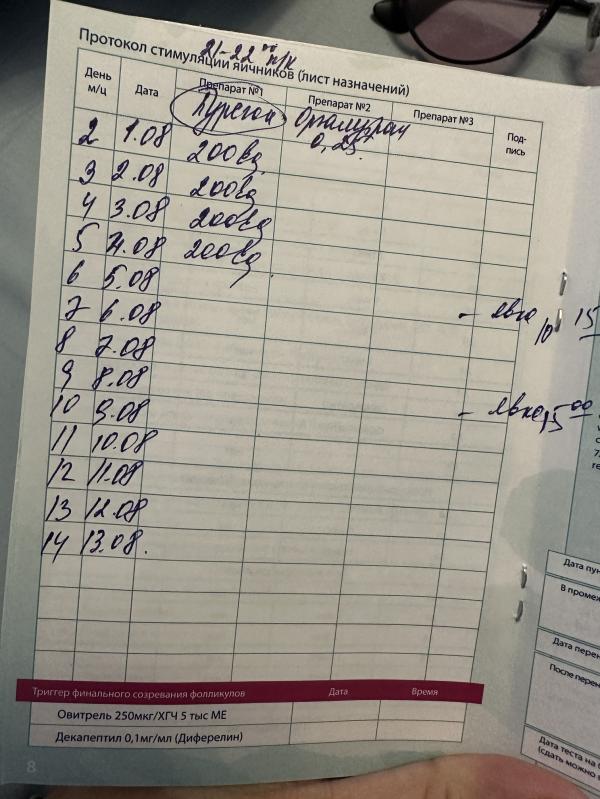 Протокол стимуляции яичников (лист назначений)
21-22⁰⁰ п/к
День м/ц Дата Препарат №1 Препарат №2 Препарат №3 Под-пись
Пурегон Оргалутран
0,25
2 1.08 200 ед
3 2.08 200 ед
4 3.08 200 ед
5 4.08 200 ед
6 5.08
7 6.08 - явка 10 15
8 7.08
9 8.08
10 9.08 - явка 15⁰⁰
11 10.08
12 11.08
13 12.08
14 13.08.
Триггер финального созревания фолликулов Дата Время
Овитрель 250мкг/ХГЧ 5 тыс МЕ
Декапептил 0,1мг/мл (Диферелин)
8
Дата пун
В промеж
Дата перен
После перен
Дата теста на б
(сдать можно в